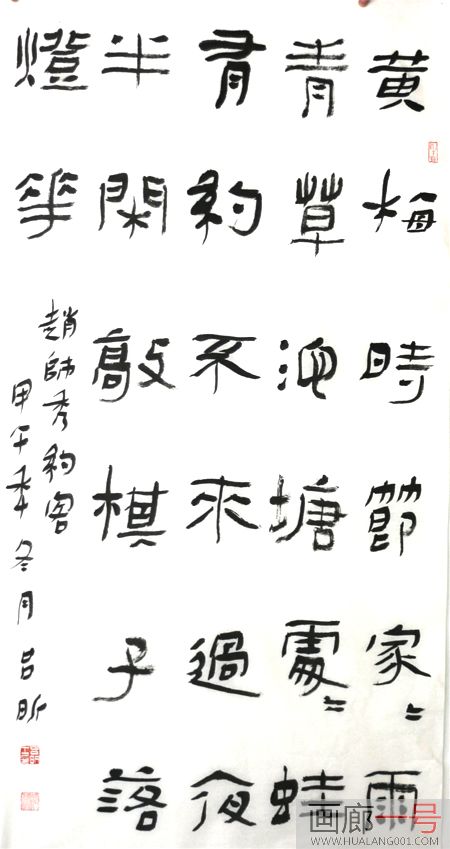 黄梅時節家〻雨
青草池塘處〻蛙
有約不來過夜
半閑敲棋子落
燈花
趙師秀約客
甲午年冬月吕昕
画廊一号
WWW.HUALANG001.COM